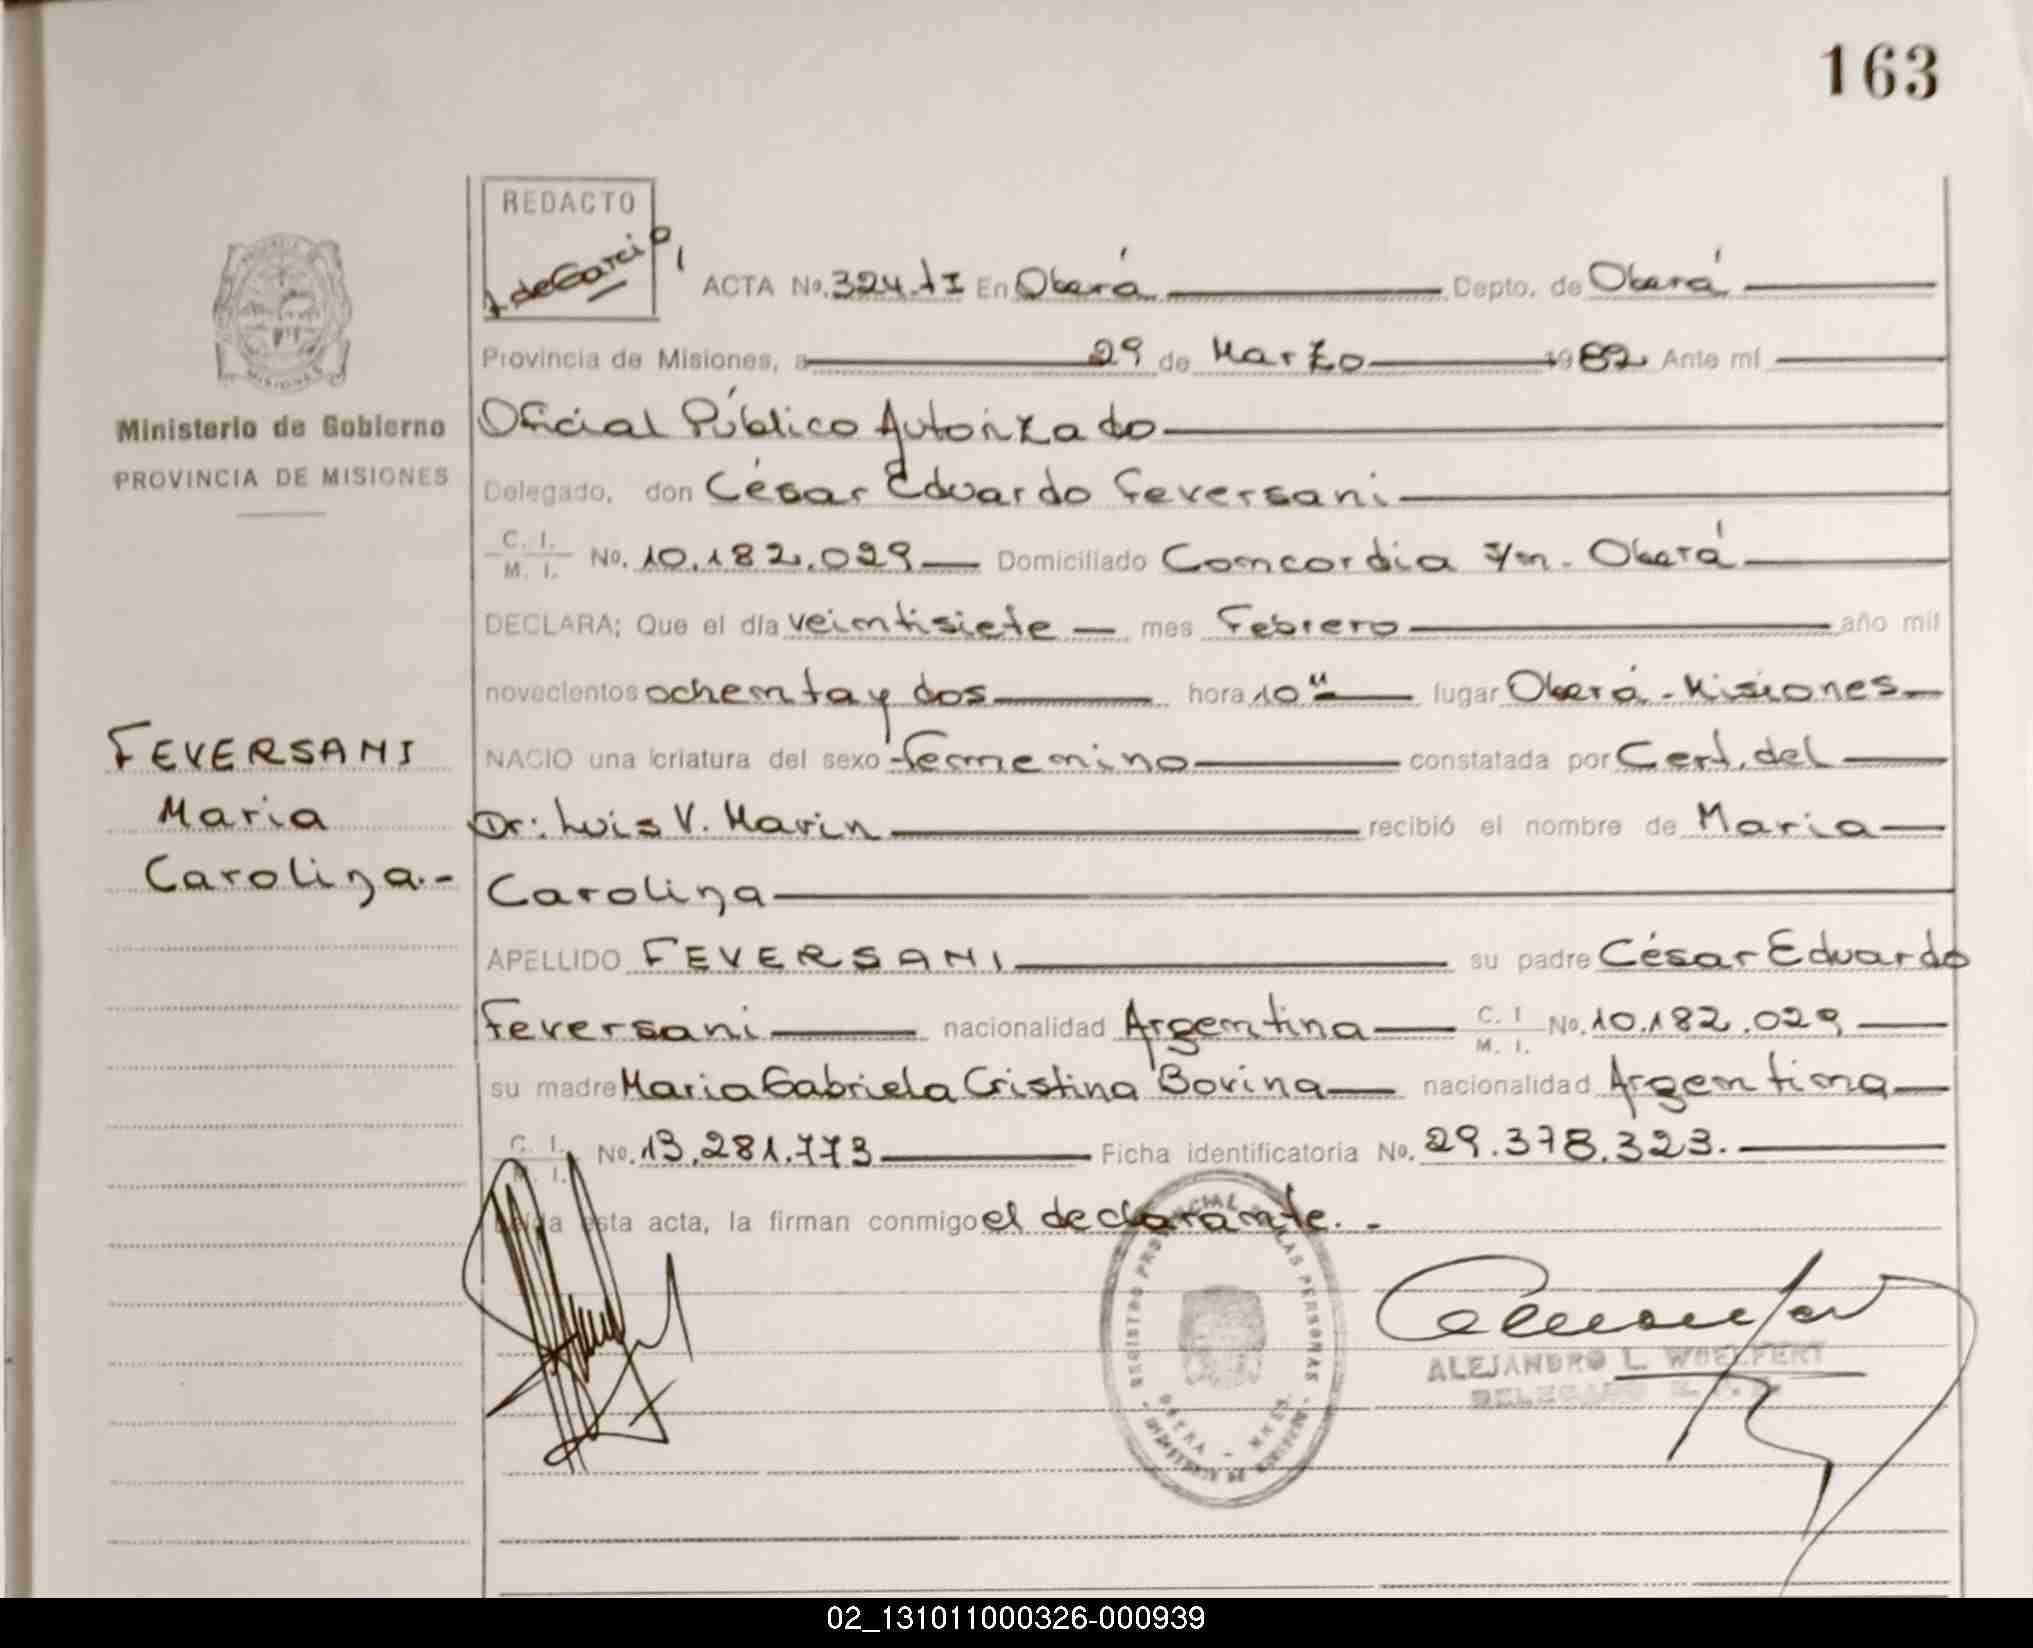 163
REDACTO
de Garcia
ACTA No. 324. tI En Oberá Depto. de Oberá
Provincia de Misiones, a 29 de Marzo 1982 Ante mí
Oficial Público Autorizado
Delegado, don César Eduardo Feversani
C. I. M. I. No. 10.182.029 Domiciliado Concordia s/n. Oberá
DECLARA; Que el día veintisiete mes Febrero año mil
novecientos ochenta y dos hora 10 lugar Oberá - Misiones
NACIO una criatura del sexo femenino constatada por Cert. del
Dr: Luis V. Marin recibió el nombre de Maria
Carolina
APELLIDO FEVERSANI su padre César Eduardo
Feversani nacionalidad Argentina C. I M. I. No. 10.182.029
su madre Maria Gabriela Cristina Bovina nacionalidad Argentina
C. I. M. I. No. 13.281.773 Ficha identificatoria No. 29.378.323.
Leída esta acta, la firman conmigo el declarante. -
MISIONES
Ministerio de Gobierno
PROVINCIA DE MISIONES
FEVERSANI
Maria
Carolina.-
REGISTRO PROVINCIAL DE LAS PERSONAS
OBERA - MNES.
MINISTERIO DE GOBIERNO
ALEJANDRO L. WUELFERT
DELEGADO
02_131011000326-000939